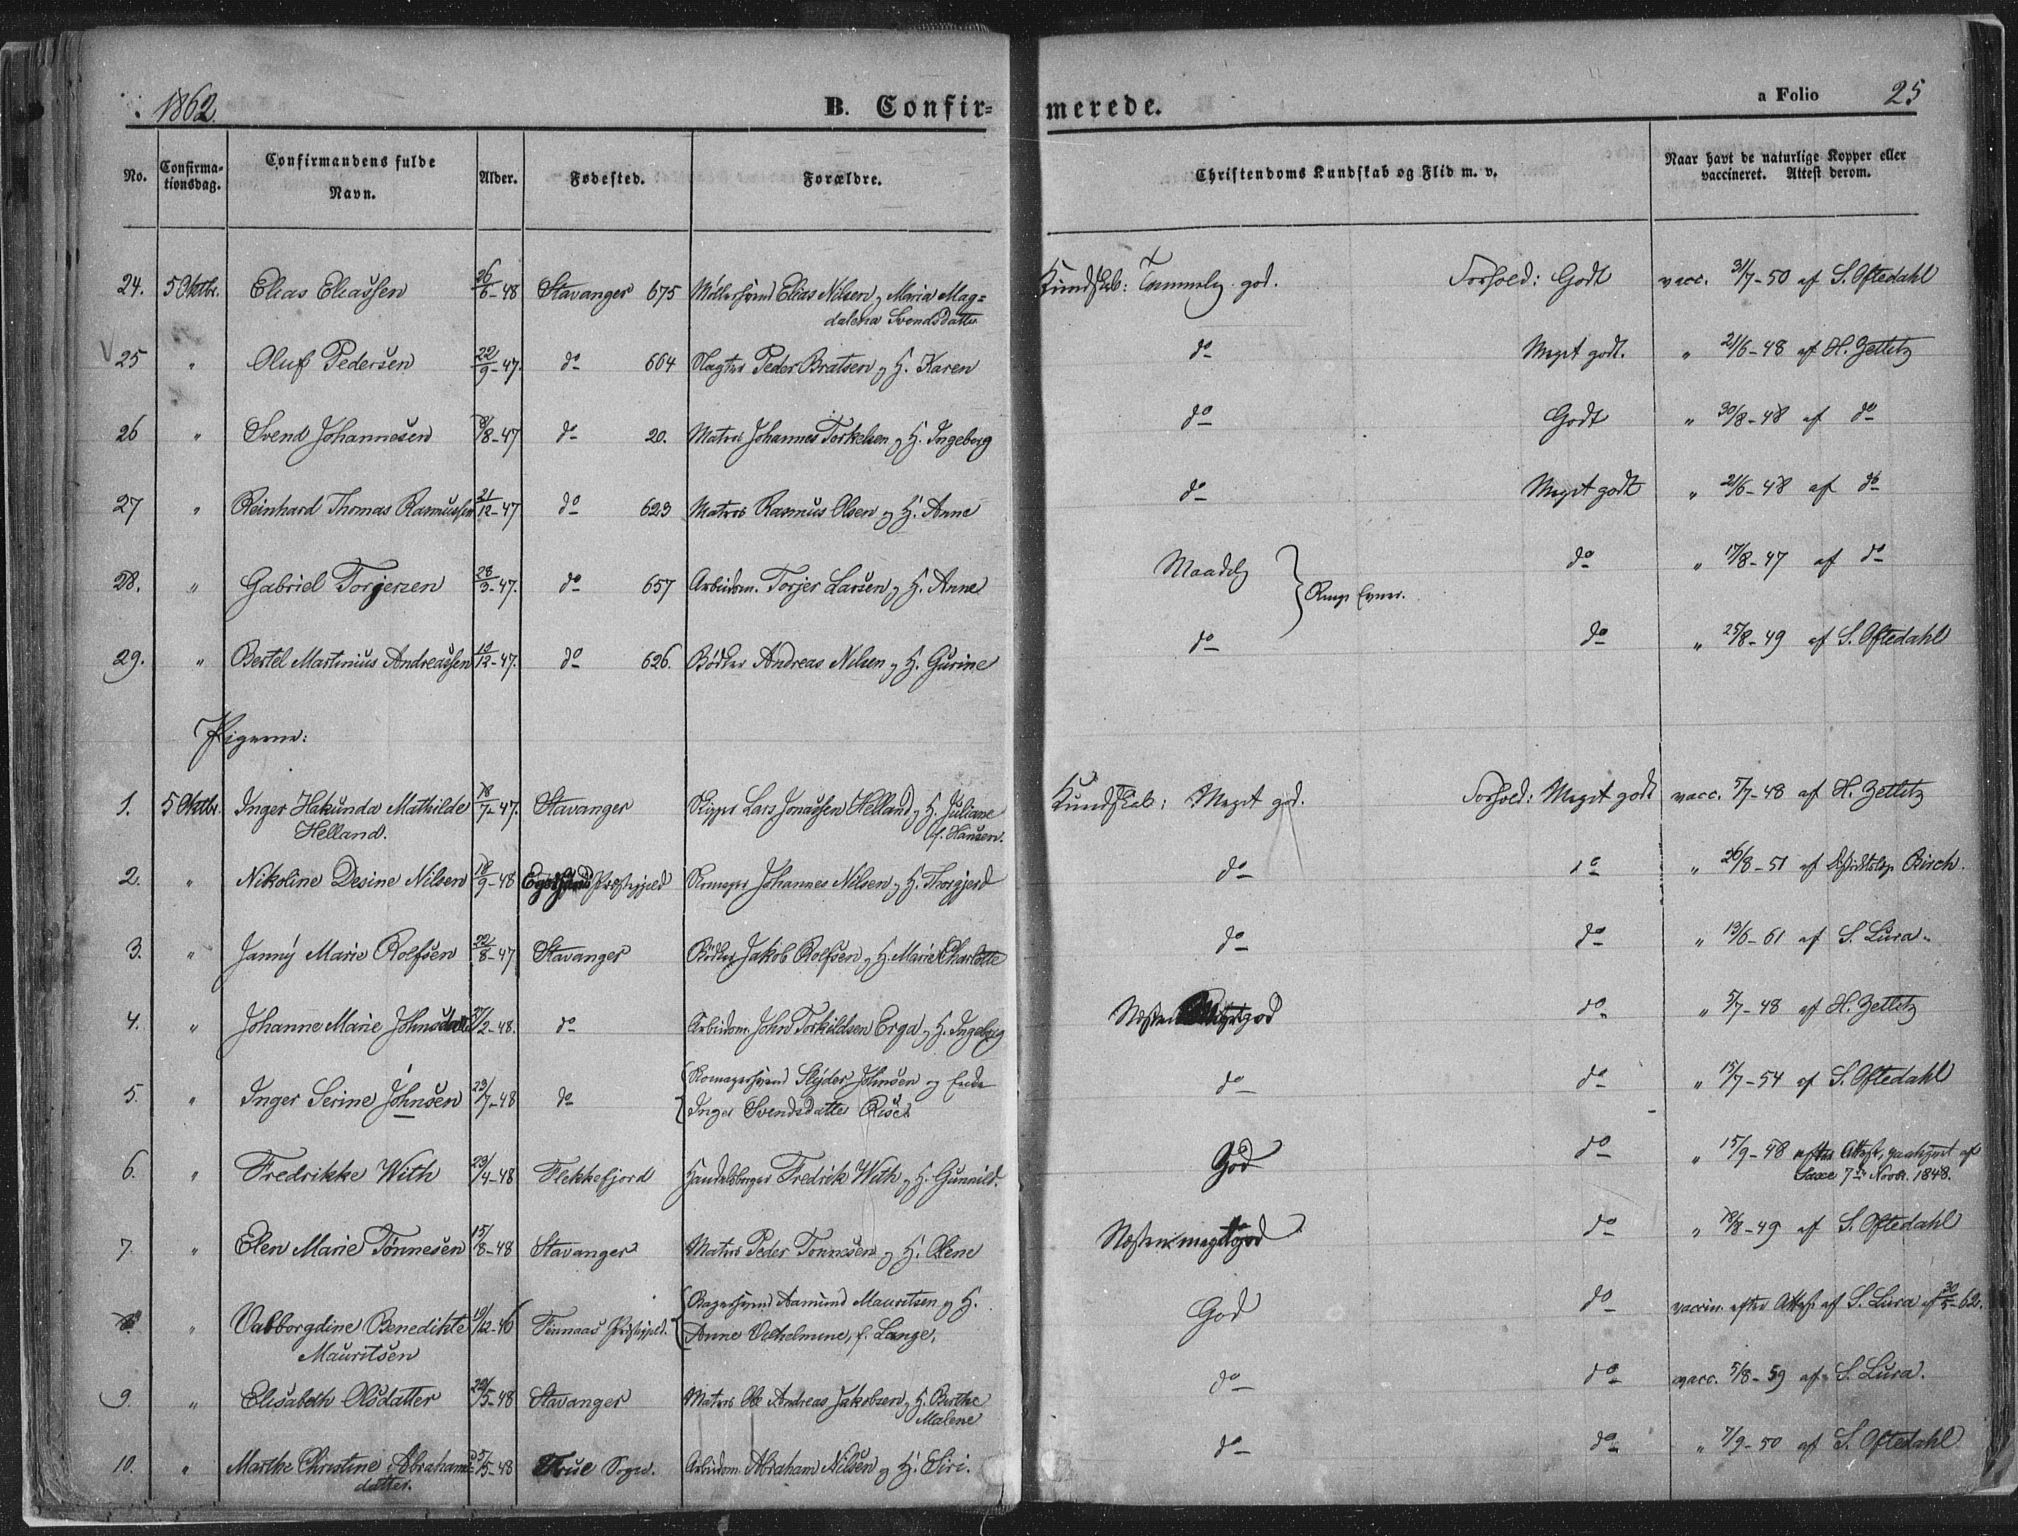 1862.
B. Confir=
merede.
a Folio 25
No.
Confirma-
tionsdag.
Confirmandens fulde
Navn.
Alder.
Fødested.
Forældre.
Christendoms Kundskab og Flid m. v.
Naar havt de naturlige Kopper eller
vaccineret. Attest derom.
24. 5 Oktbr. Elias Eliassen 26/6-48 Stavanger 675 Møllersvend Elias Nilsen og Maria Mag=
dalena Svendsdatter
Kundskab: Temmelig god. Forhold: Godt vacc. 31/7-50 af S. Oftedahl
25 " Oluf Pedersen 22/9-47. do 664 Slagter Peder Bratsen og H. Karen
do Meget godt. " 21/6-48 af H. Zetlitz
26 " Svend Johannesen 8/8-47 do 20. Matros Johannes Torkelsen og H. Ingeborg
do Godt " 30/8-48 af do
27 " Reinhard Thomas Rasmussen 21/12-47 do 623 Matros Rasmus Olsen og H. Anne
do Meget godt " 21/6-48 af do
28. " Gabriel Torjersen 28/3-47. do 657 Arbeidsm. Torjer Larsen og H. Anne
Maadelig do " 17/8-47 af do
Ringe Evner.
29. " Bertel Martinius Andreassen 10/12-47. do 626. Bødker Andreas Nilsen og H. Gurine
do do " 25/8-49 af S. Oftedahl
Pigerne:
1. 5 Oktbr. Inger Hakunda Mathilde 18/7-47. Stavanger Skipper Lars Jonassen Helland og H. Juliane
Helland. f. Hansen.
Kundskab: Meget god. Forhold: Meget godt vacc. 5/7-48 af H. Zetlitz
2. " Nikoline Desine Nilsen 18/9-48 Præstegjeld Skomager Johannes Nilsen og H. Thorgjerd
do do " 26/8-51 af Distriktslæge Birch.
3. " Janny Marie Rolfsen 22/8-47 Stavanger Bødker Jakob Rolfsen og H. Marie Charlotte
do do " 13/6-61 af S. Lura.
4. " Johanne Marie Johnsdatter /2-48. do Arbeidsm. John Torkildsen Erga og H. Ingeborg
Næsten Meget god do. " 5/7-48 af H. Zetlitz
5. " Inger Serine Johnsen 23/7-48 do Skomagersvend Slyder Johnsen og Enke
Inger Svendsdatter Riset.
do do " 15/7-54 af S. Oftedahl
6. " Fredrikke With 23/4-48 Flekkefjord Handelsborger Fredrik With og H. Gunnild.
God do " 15/9-48 efter Attest, paategnet af
Saxe 7de Novbr. 1848.
7. " Elen Marie Tønnesen 15/8-48 Stavanger Matros Peder Tønnesen og H. Olene
Næsten meget god do " 18/8-49 af S. Oftedahl
8 " Valborgdine Benedikte 19/12-46 Finnaas Præstegjeld. Bagersvend Aamund Mauritsen og H.
Mauritsen Anne Vilhelmine, f. Lange,
God do vaccin. efter Attest af S. Lura af 30/5-62.
9. " Elisabeth Olsdatter 29/5-48 Stavanger Matros Ole Andreas Jakobsen og H. Berthe
Malene
do do vacc. 5/8-59 af S. Lura.
10. " Marthe Christine Abrahams= 5/5-48 Sogn. Arbeidsm. Abraham Nilsen og H. Siri.
datter.
do do " 7/9-50 af S. Oftedahl